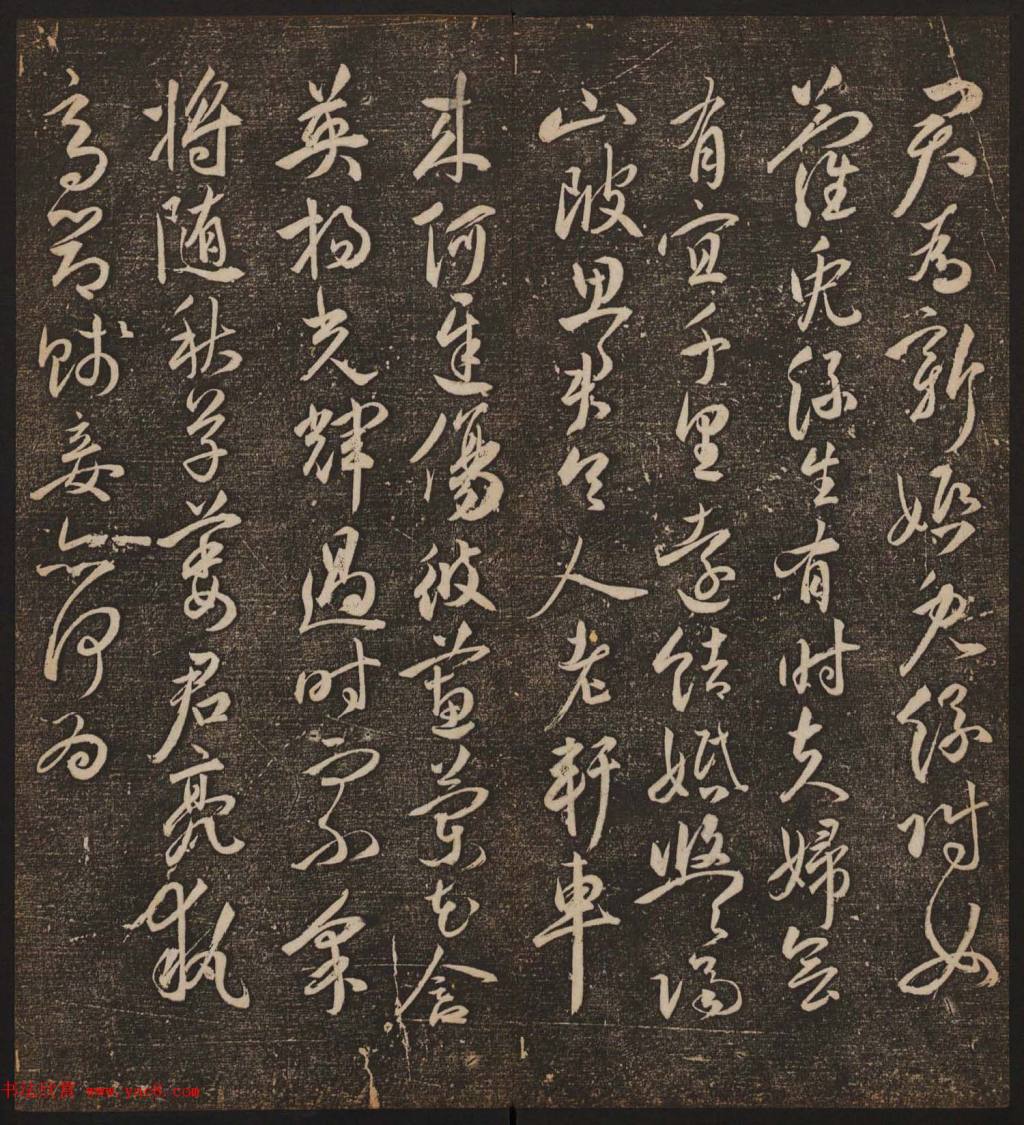 君為新婚兔絲附女
蘿兔絲生有時夫婦會
有宜千里遠結婚悠悠隔
山陂思君令人老軒車
來何遲傷彼蕙蘭花含
英揚光輝過時而不采
將隨秋草萎君亮執
高節賤妾亦何為
书法欣赏 www.yac8.com